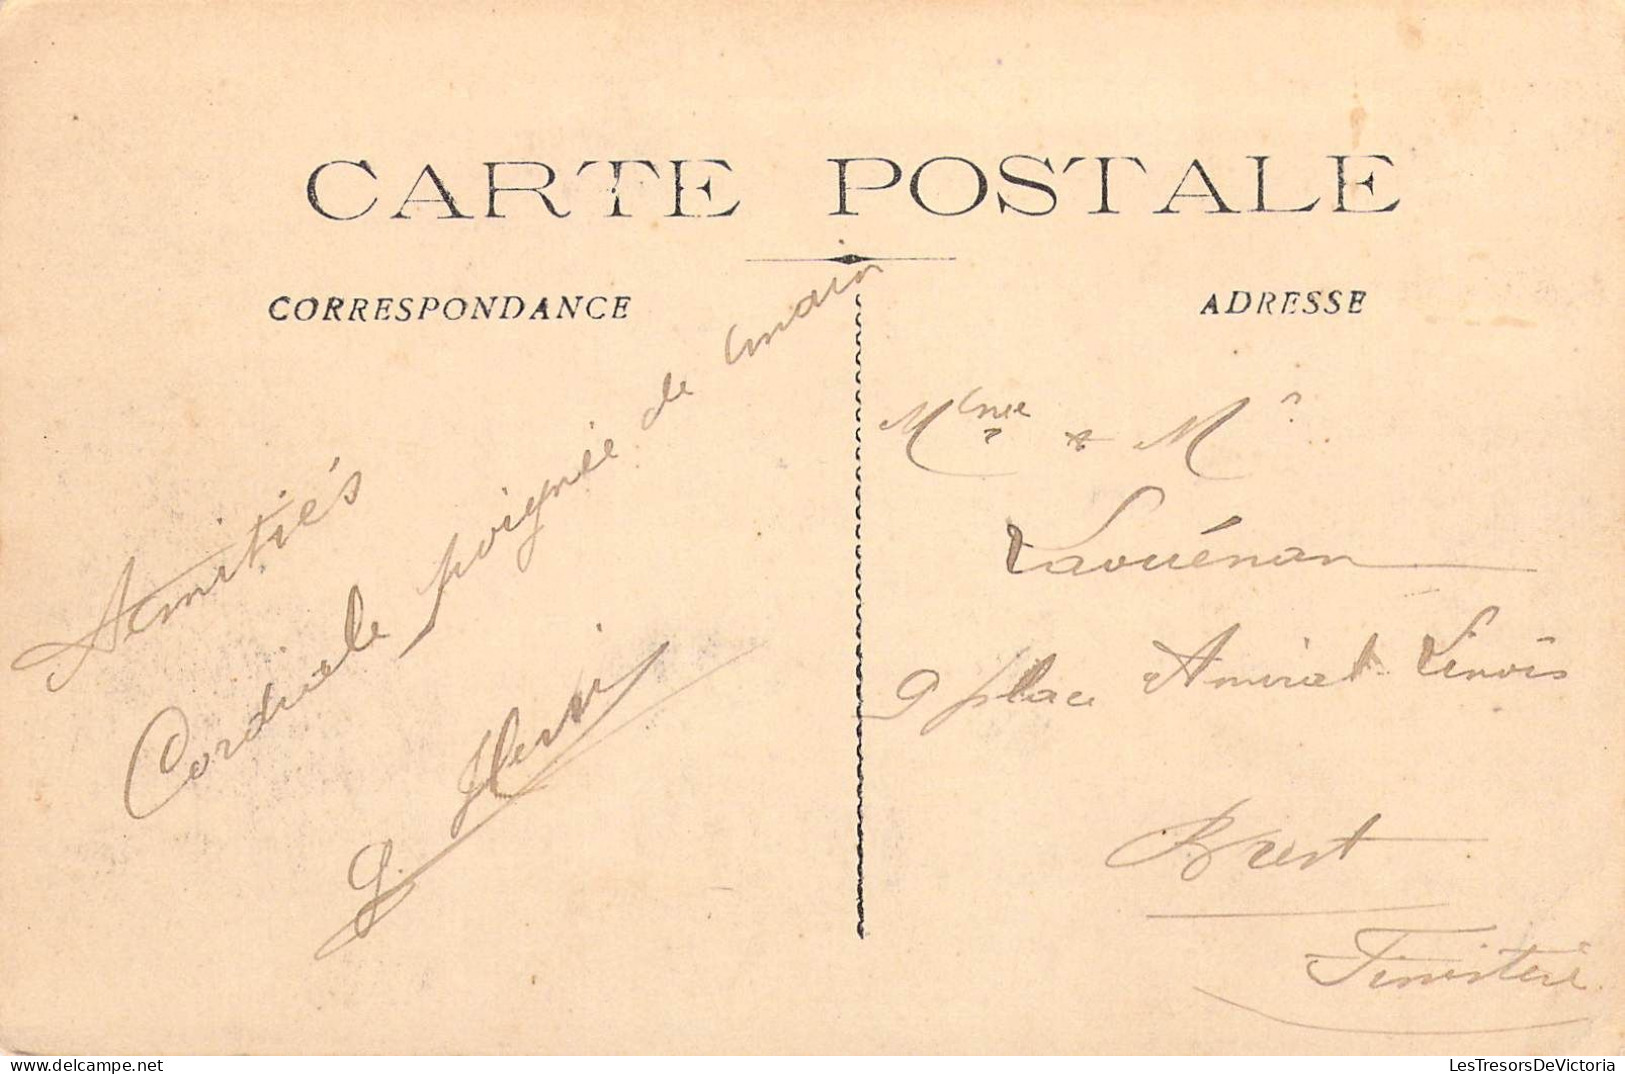 CARTE POSTALE
CORRESPONDANCE
Amitiés
Cordiale poignée de main
ADRESSE
Mme & Mr
Laouénan
9 place Amiral Linois
Brest
Finistère
LesTresorsDeVictoria